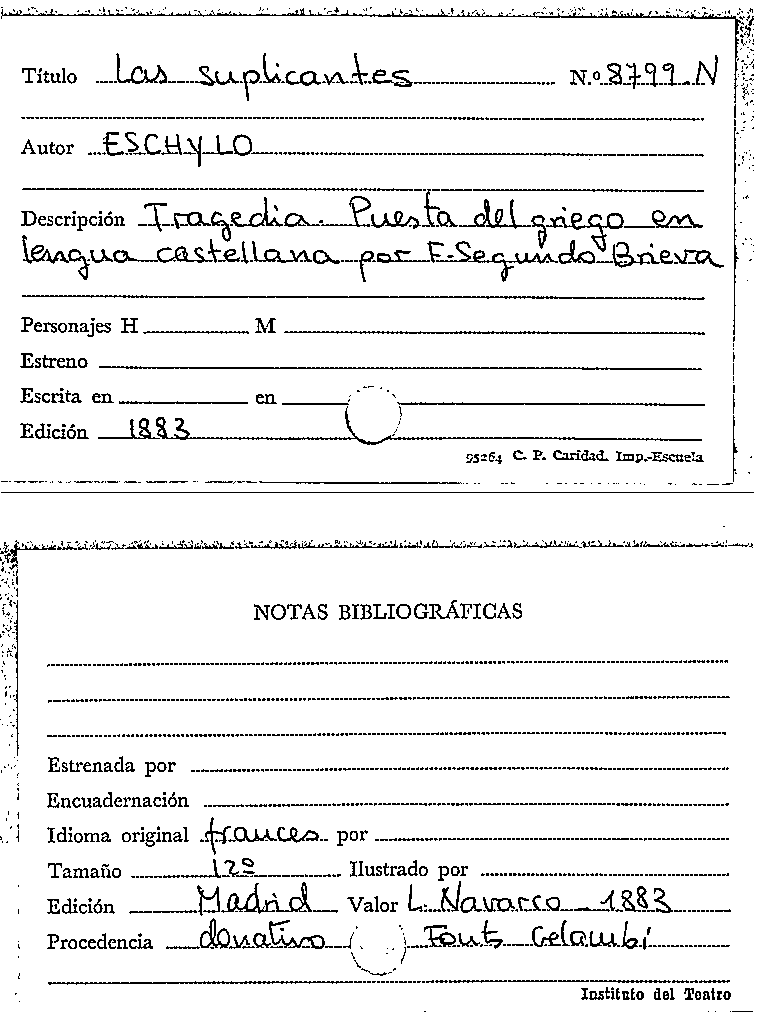 Título Las suplicantes N.º 8799 N
Autor ESCHYLO
Descripción Tragedia. Puesta del griego en
lengua castellana por F. Segundo Brieva
Personajes H M
Estreno
Escrita en en
Edición 1883
95264 C. P. Caridad. Imp.-Escuela
NOTAS BIBLIOGRÁFICAS
Estrenada por
Encuadernación
Idioma original frances por
Tamaño 12º Ilustrado por
Edición Madrid Valor L. Navarro - 1883
Procedencia donativo Fonts
Instituto del Teatro